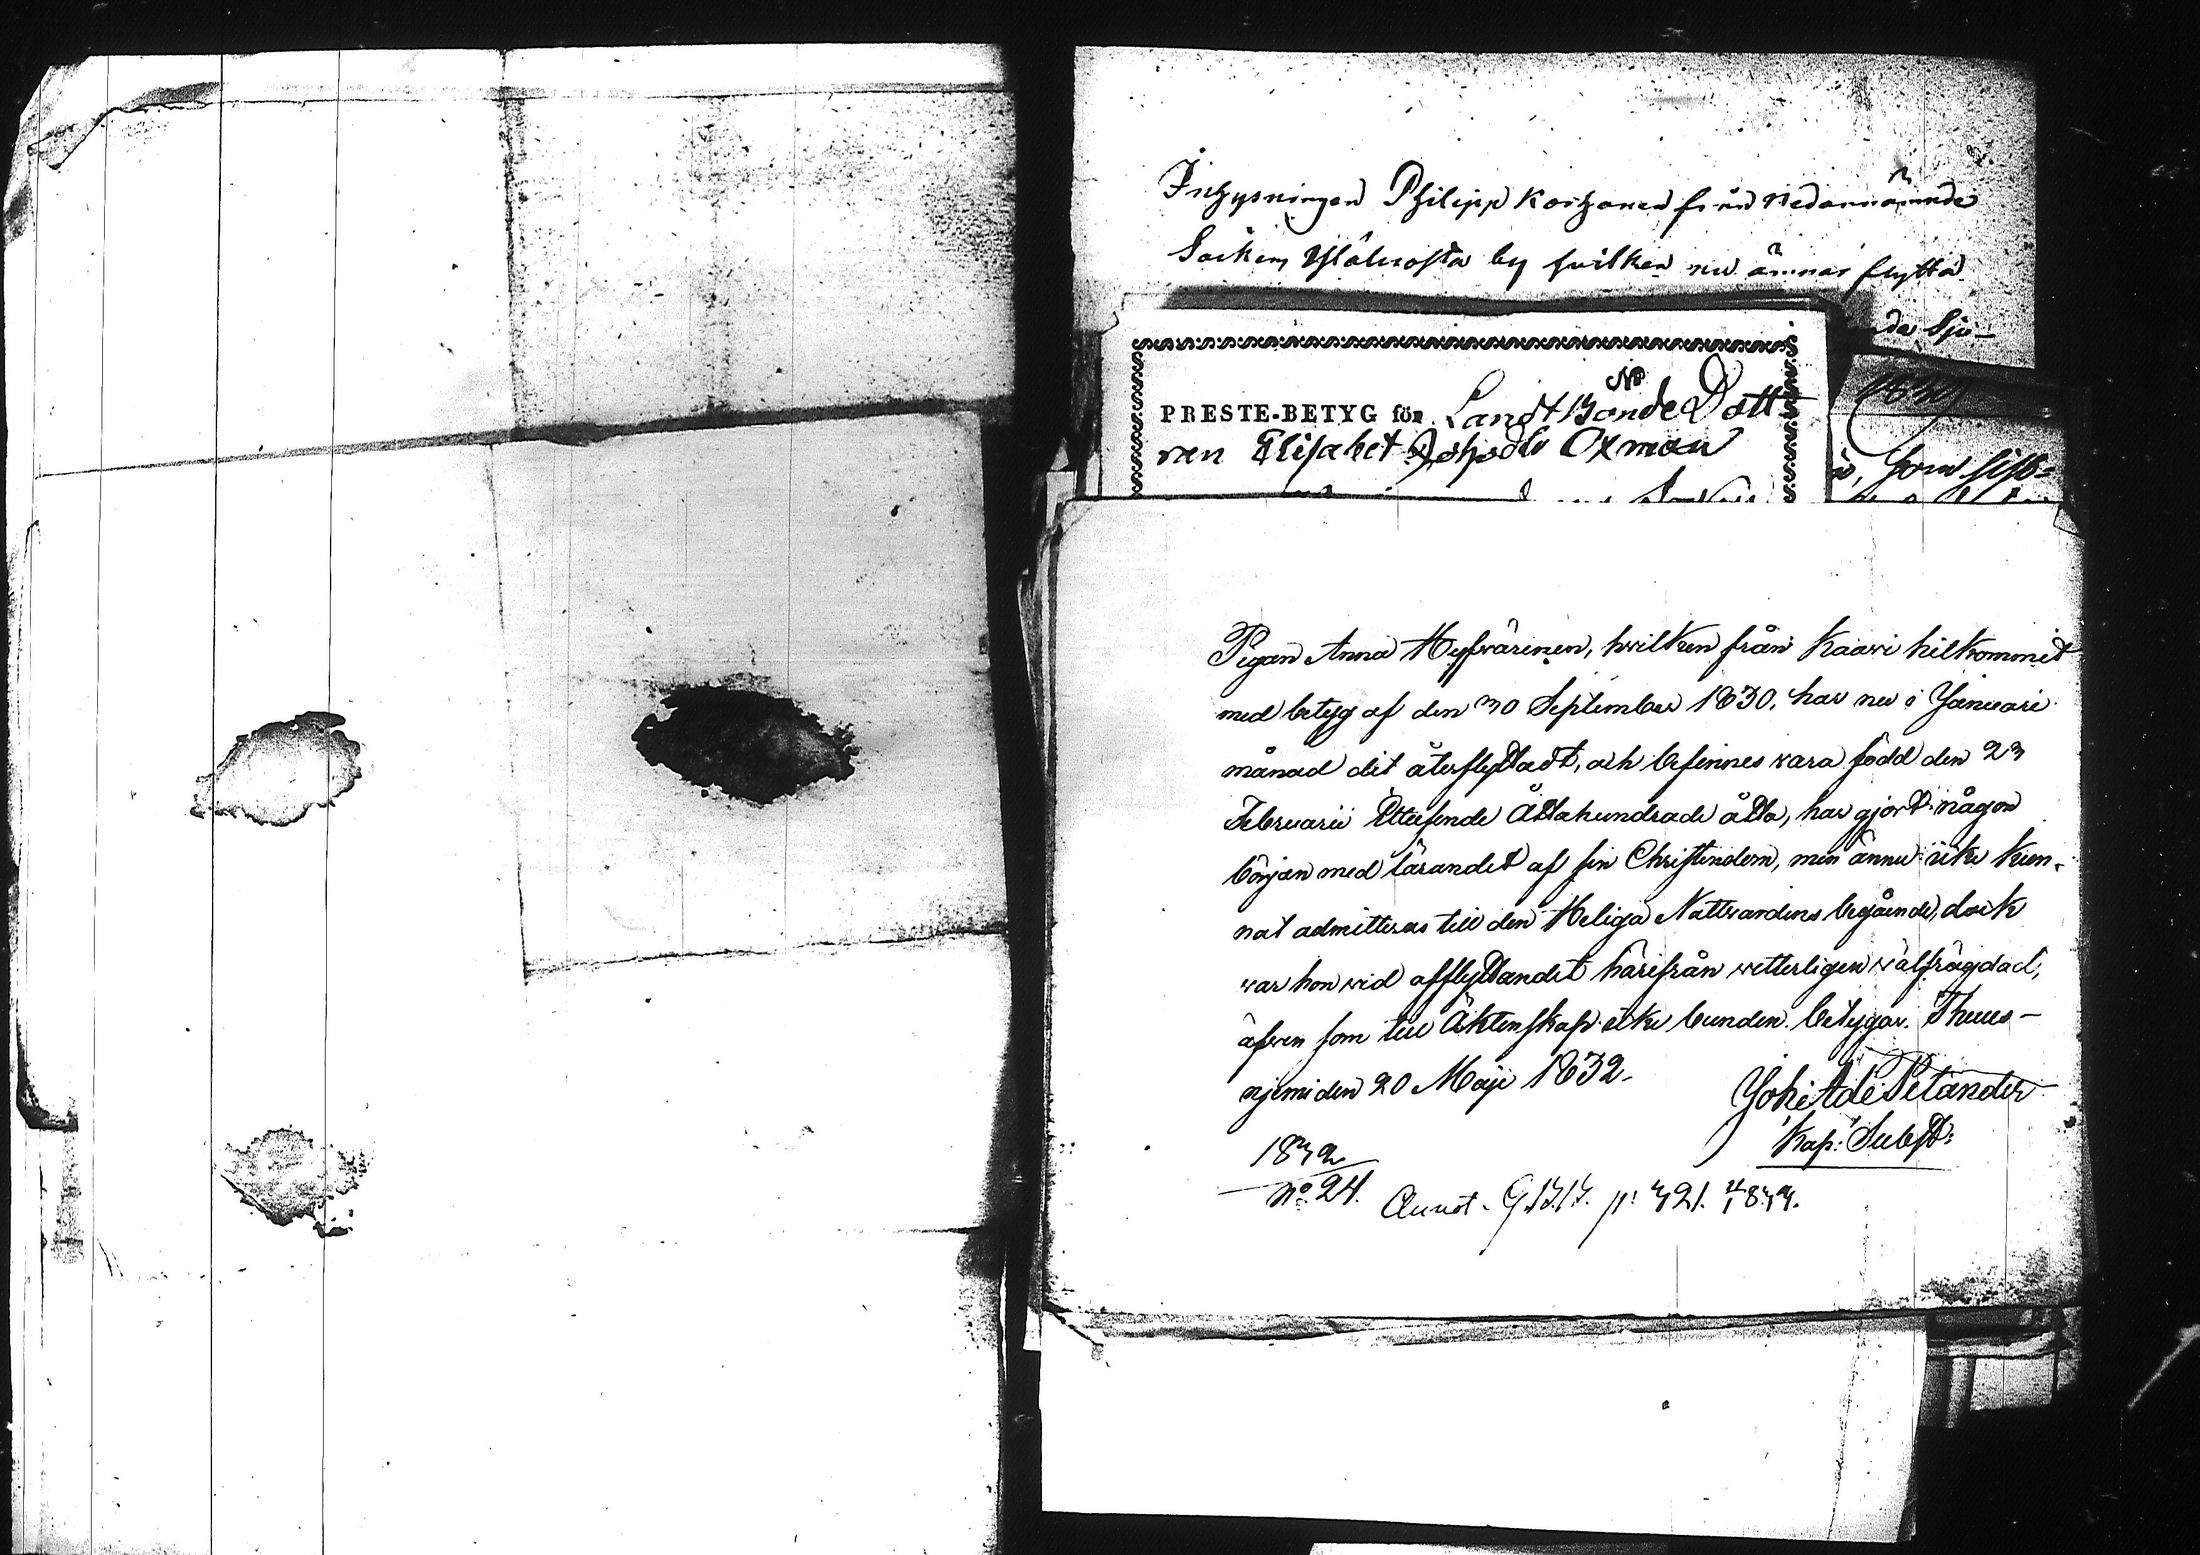 Inhysningen Philipp Korhonen från nedannämnde
Socken by hvilken nu ämnar flytta
N:o
PRESTE-BETYG för Landt Bonde Dott
ren Elisabet Oxman
som sist-
Pigan Anna Hyfvärinen, hvilken från Kaavi hitkommit
med betyg af den 30 September 1830, har nu i Januari
månad dit återflyttadt, och befinnes vara född den 23
Februarii Ettusende Åttahundrade åtta, har gjort någon
början med lärandet af sin Christendom, men ännu icke kun-
nat admitteras till den Heliga Nattvardens begående, dock
var hon vid afflyttandet härifrån vetterligen välfrägdad,
äfven som till Äktenskap icke bunden. betygar. Thuus-
njemi den 20 Maji 1832.
Joh: Ad: Petander
Kap: Subst:
1832
No 24. Annot. p: 321.